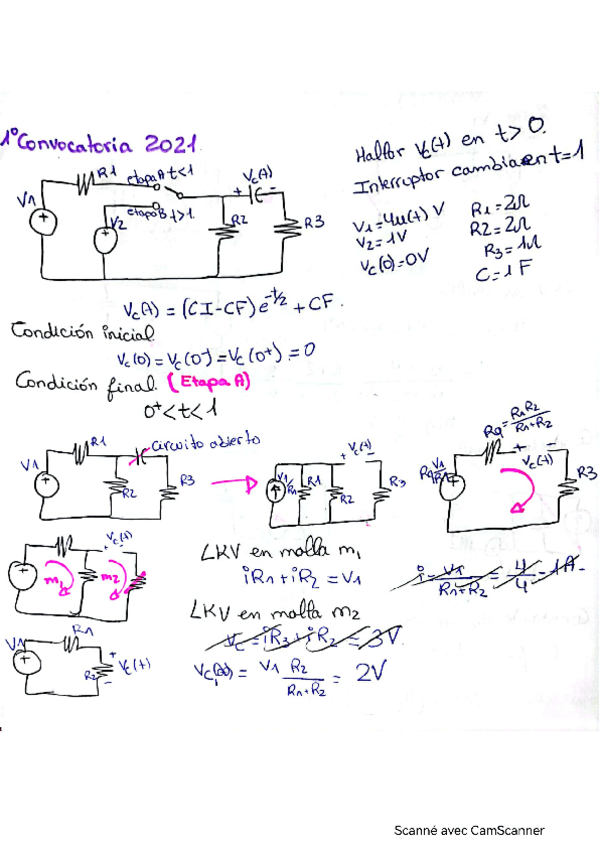 1º Convocatoria 2021
Hallar Vc(t) en t>0.
Interruptor cambia en t=1
V1 R1 etapa A t<1 Vc(t)
+ -
V2 etapa B t>1. R2 R3
V1=4u(t) V R1=2Ω
V2=1V R2=2Ω
Vc(0)=0V R3=1Ω
C=1F
Vc(t) = (CI-CF)e^-t/2 + CF.
Condición inicial.
Vc(0)=Vc(0-)=Vc(0+)=0
Condición final. (Etapa A)
0+<t<1
V1 R1 circuito abierto R2 R3
V1/R1 R1 R2 + Vc(t) - R3
Rq=R1R2/(R1+R2) + Vc(t) - R3
+ Vc(t) - m1 m2
LKV en malla m1
iR1+iR2=V1
i=V1/(R1+R2)=4/4=1A.
LKV en malla m2
Vc=iR3+iR2=3V.
V1 R1 R2 + Vc(t) -
Vc(∞)= V1 R2/(R1+R2) = 2V
Scanné avec CamScanner